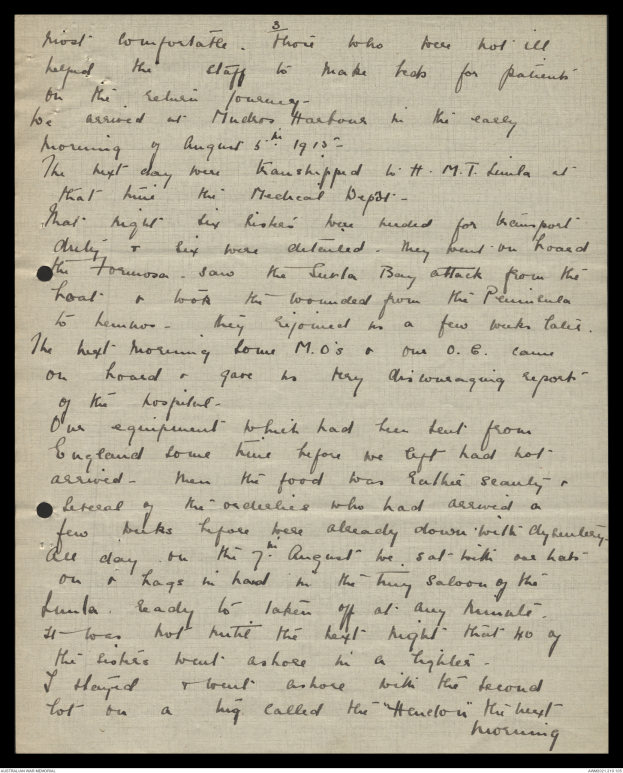 3
most comfortable. Those who were not ill
helped the staff to make beds for patients
on the return journey -
We arrived at Mudros Harbour in the early
morning of August 5th 1915 -
The next day were transhipped to H.M.T. Simla at
that time the Medical Depôt -
That night six sisters were needed for transport
duty & six were detailed. They went on board
the Formosa - saw the Suvla Bay attack from the
boat & took the wounded from the Peninsula
to Lemnos - they rejoined us a few weeks later.
The next morning some M.O's & our O.C. came
on board & gave us very discouraging reports
of the hospital -
Our equipment which had been sent from
England some time before we left had not
arrived - then the food was rather scanty &
several of the orderlies who had arrived a
few weeks before were already down with dysentery -
All day on the 7th August we sat with our hats
on & bags in hand in the tiny saloon of the
Simla ready to taken off at any minute.
It was not until the next night that 40 of
the sisters went ashore in a lighter -
I stayed & went ashore with the second
lot on a tug called the "Hendon" the next
morning
AUSTRALIAN WAR MEMORIAL